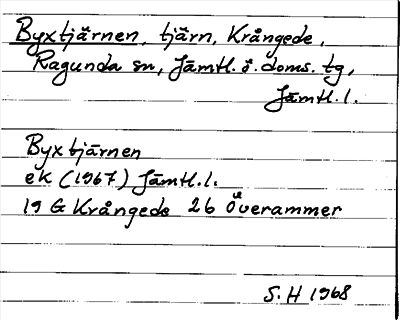 Byxtjärnen, tjärn, Krångede,
Ragunda sn, Jämtl. ö. doms. tg,
Jämtl. l.
Byxtjärnen
ek (1967) Jämtl. l.
19 G Krångede 2b Överammer
S. H 1968